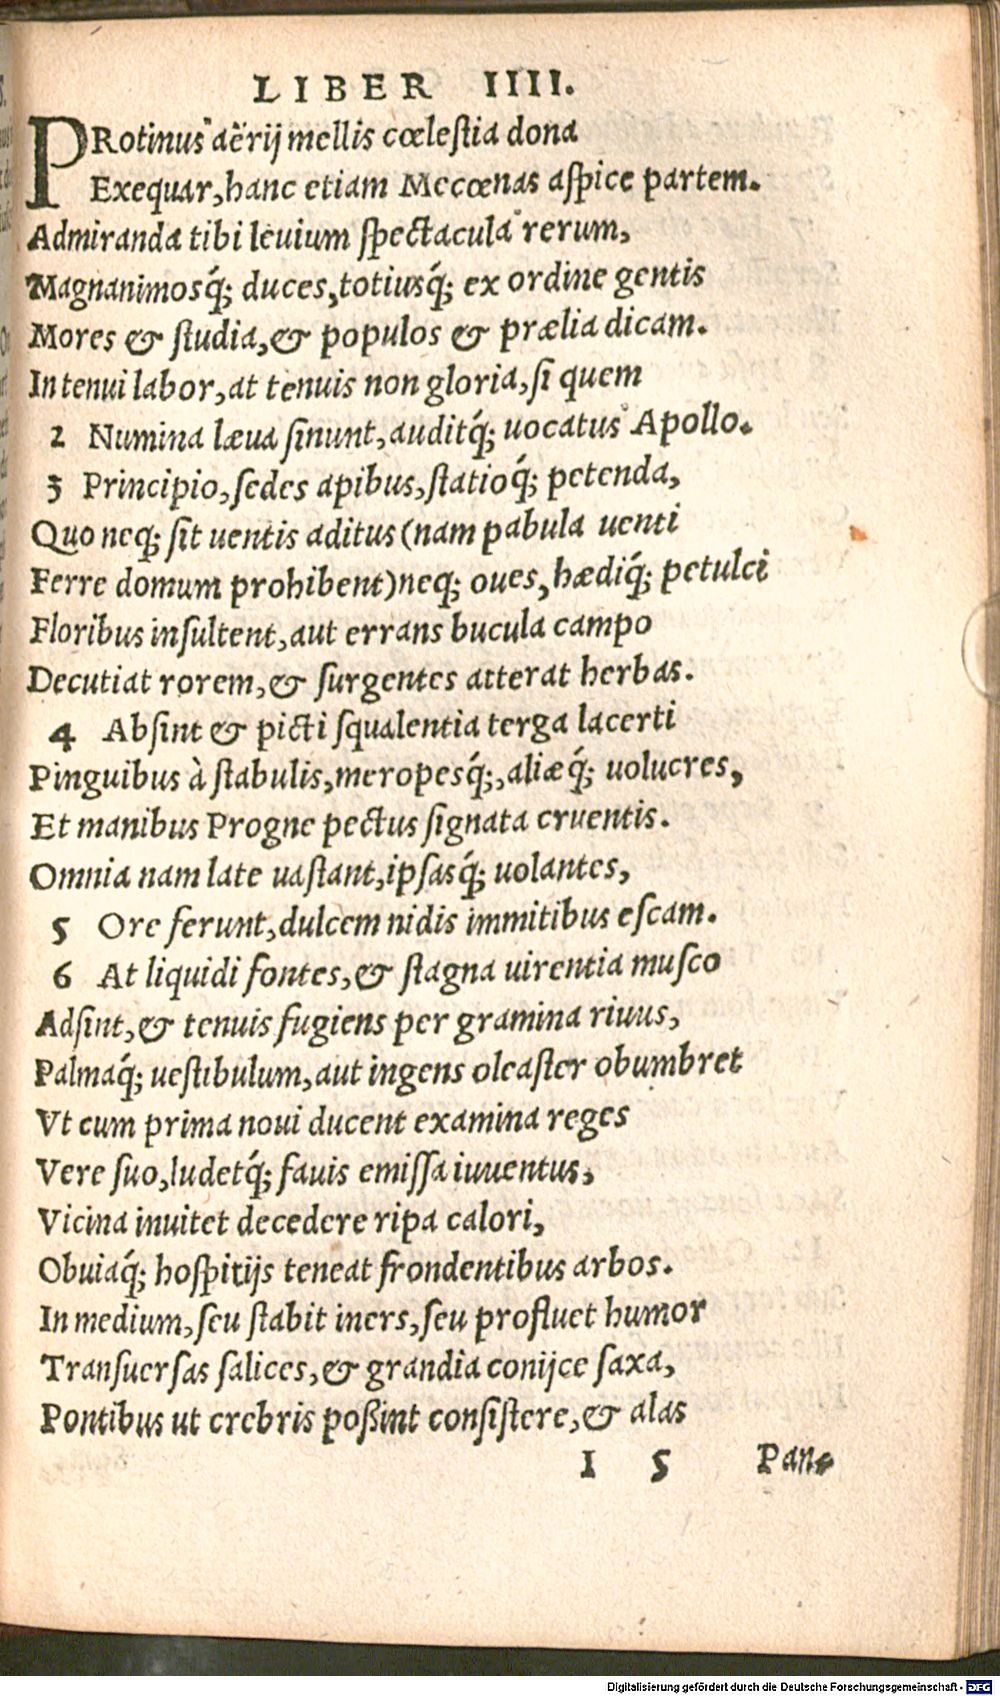 LIBER IIII.
PRotinus aërij mellis cœlestia dona
Exequar, hanc etiam Mecœnas aspice partem.
Admiranda tibi leuium spectacula rerum,
Magnanimosq́; duces, totiusq́; ex ordine gentis
Mores & studia, & populos & prælia dicam.
In tenui labor, at tenuis non gloria, si quem
2 Numina læua sinunt, auditq́; uocatus Apollo.
3 Principio, sedes apibus, statioq́; petenda,
Quo neq; sit uentis aditus (nam pabula uenti
Ferre domum prohibent) neq; oues, hædiq́; petulci
Floribus insultent, aut errans bucula campo
Decutiat rorem, & surgentes atterat herbas.
4 Absint & picti squalentia terga lacerti
Pinguibus à stabulis, meropesq́;, aliæq́; uolucres,
Et manibus Progne pectus signata cruentis.
Omnia nam late uastant, ipsasq́; uolantes,
5 Ore ferunt, dulcem nidis immitibus escam.
6 At liquidi fontes, & stagna uirentia musco
Adsint, & tenuis fugiens per gramina riuus,
Palmaq́; uestibulum, aut ingens oleaster obumbret
Vt cum prima noui ducent examina reges
Vere suo, ludetq́; fauis emissa iuuentus,
Vicina inuitet decedere ripa calori,
Obuiaq́; hospitijs teneat frondentibus arbos.
In medium, seu stabit iners, seu profluet humor
Transuersas salices, & grandia conijce saxa,
Pontibus ut crebris poßint consistere, & alas
I 5 Pan-
Digitalisierung gefördert durch die Deutsche Forschungsgemeinschaft - DFG